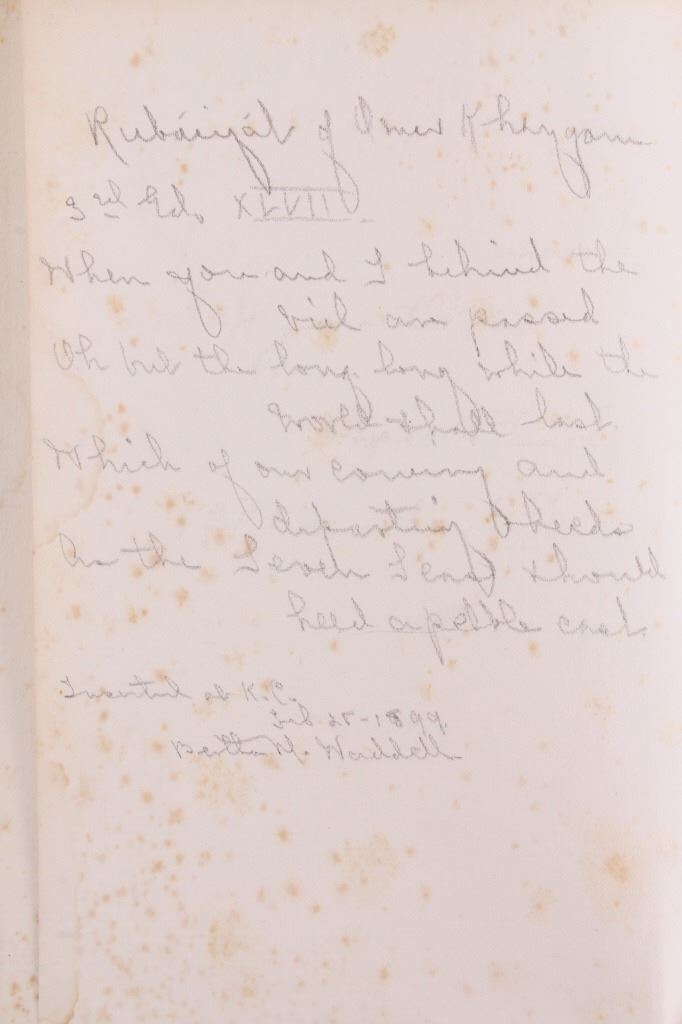 Rubáiyát of Omer Khaygam
3rd Ed. XLVII.
When you and I behind the
viel are passed
Oh but the long long while the
World shall last.
Which of our coming and
departing heeds
As the Seven Seas should
heed a pebble cast.
Inserted at K.C.
Feb 25-1899.
Bertha M. Waddell